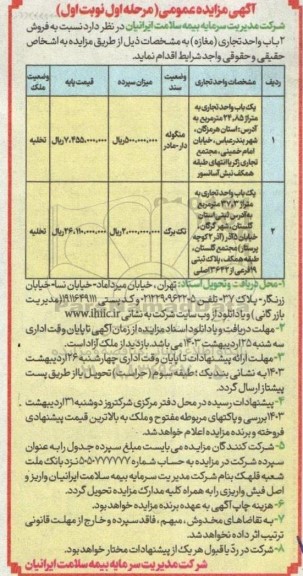 آگهی مزایده عمومی (مرحله اول نوبت اول)
شرکت مدیریت سرمایه بیمه سلامت ایرانیان در نظر دارد نسبت به فروش
۲ باب واحد تجاری (مغازه) به مشخصات ذیل از طریق مزایده به اشخاص
حقیقی و حقوقی واجد شرایط اقدام نماید.
ردیف مشخصات واحد تجاری وضعیت سند میزان سپرده قیمت پایه وضعیت ملک
۱ یک باب واحد تجاری به
متراژ ۲۴,۸۵ مترمربع به
آدرس: استان هرمزگان،
شهر بندرعباس، خیابان
امام خمینی، مجتمع
تجاری زکریا انتهای طبقه
همکف نبش آسانسور
منگوله دار-مادر ۵۰۰,۰۰۰,۰۰۰ریال ۷,۴۵۵,۰۰۰,۰۰۰ریال تخلیه
۲ یک باب واحد تجاری به
متراژ ۳۷,۳ مترمربع
به آدرس ثبتی استان
گلستان، شهر گرگان،
خیابان ۵آذر (آذر ۲ کوچه
پرستار) مجتمع گلستان،
طبقه همکف، پلاک ثبتی
۱۹فرعی از ۳۶۴۲ اصلی
تک برگ ۲,۰۰۰,۰۰۰,۰۰۰ریال ۲۶,۱۱۰,۰۰۰,۰۰۰ریال تخلیه
۱- محل دریافت و تحویل اسناد: تهران، خیابان میرداماد- خیابان نسا- خیابان
زرنگار- پلاک ۳۷- تلفن ۵-۰۲۱۲۹۰۹۶۲۲۰ و کدپستی ۱۹۱۱۶۴۹۱۱۱ (مدیریت
بازرگانی) و یا دانلود از وب سایت شرکت به نشانی www.ihilc.ir
۲- مهلت دریافت و یا دانلود اسناد مزایده: از زمان آگهی تا پایان وقت اداری
سه شنبه ۲۵ اردیبهشت ۱۴۰۳ می باشد. بازدید از ملک آزاد است.
۳- مهلت ارائه پیشنهادات: تا پایان وقت اداری چهارشنبه ۲۶ اردیبهشت
۱۴۰۳ به نشانی بند یک (طبقه سوم) (حراست) تحویل یا از طریق پست
پیشتاز ارسال گردد.
۴- پیشنهادات رسیده در محل دفتر مرکزی شرکت روز دوشنبه ۳۱ اردیبهشت
۱۴۰۳ بررسی و پاکتهای مربوطه مفتوح و ملک به بالاترین قیمت پیشنهادی
فروخته و برنده مزایده اعلام خواهد شد.
۵- شرکت کنندگان مزایده می بایست مبلغ سپرده جدول را به عنوان
سپرده شرکت در مزایده به حساب شماره نزد بانک ملت
شعبه قلهک بنام شرکت مدیریت سرمایه بیمه سلامت ایرانیان واریز و
اصل فیش واریزی را به همراه کلیه مدارک مزایده تحویل گردد.
۶- هزینه چاپ آگهی به عهده برنده مزایده خواهد بود.
۷- به تقاضاهای مخدوش، مبهم، فاقد سپرده و خارج از مهلت قانونی
ترتیب اثر داده نخواهد شد.
۸- شرکت در رد یا قبول هر یک از پیشنهادات مختار خواهد بود.
شرکت مدیریت سرمایه بیمه سلامت ایرانیان